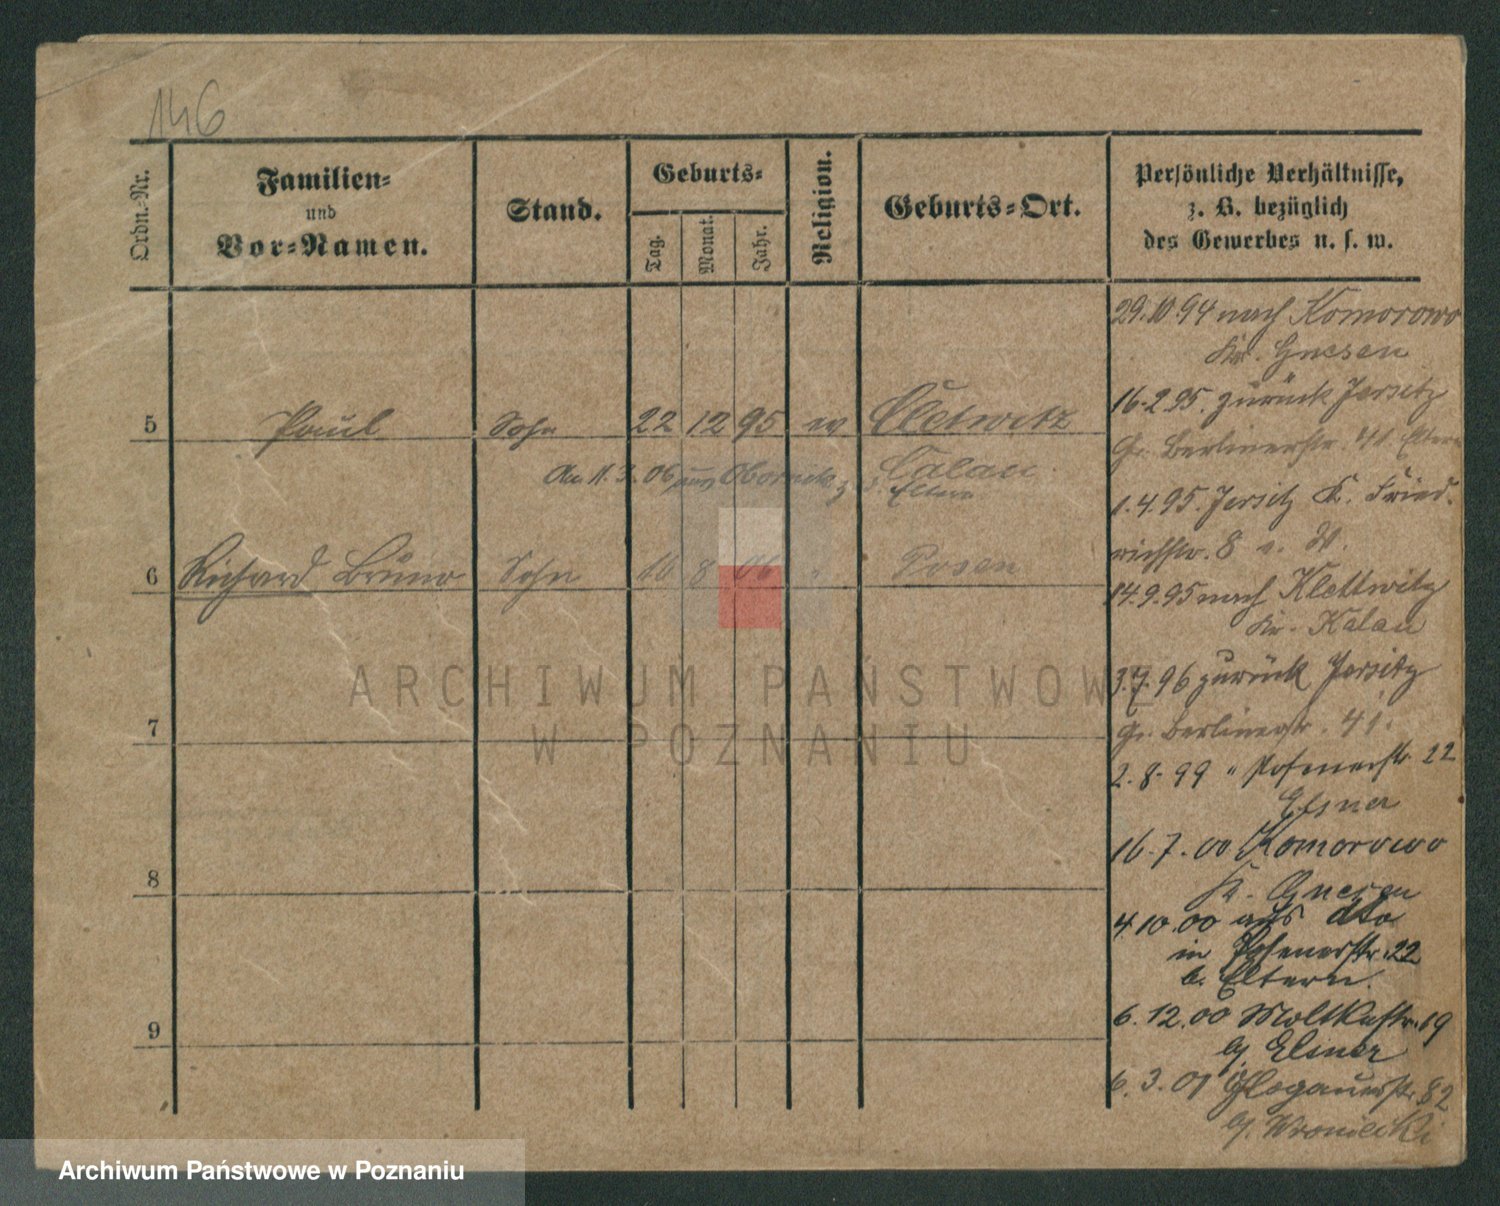 146
Ordn.-Nr.
Familien-
und
Vor-Namen.
Stand.
Geburts-
Tag.
Monat.
Jahr.
Religion.
Geburts-Ort.
Persönliche Verhältnisse,
z. B. bezüglich
des Gewerbes u. s. w.
5 Paul Sohn 22 12 95 ev Clettwitz
Calau
An 11.3.06 aus Obornik z. d. Eltern
6 Richard Bruno Sohn 10 8 06 " Posen
7
8
9
29.10.94 nach Komorowo
Kr. Gnesen
16.2.95. zurück Jersitz
Gr. Berlinerstr. 41 Eltern
1.4.95. Jersitz K. Fried-
richstr. 8
14.9.95 nach Klettwitz
Kr. Kalau
3.7.96 zurück Jersitz
Gr. Berlinerstr. 41.
2.8.99 " Posenerstr. 22
Elsner
16.7.00 Komorowo
Kr. Gnesen
4.10.00 aus dto
in Posenerstr. 22
b. Eltern.
6.12.00 Moltkestr. 19
bj. Elsner
6.3.01 Glogauerstr. 82
bj.
ARCHIWUM PAŃSTWOWE
W POZNANIU
Archiwum Państwowe w Poznaniu